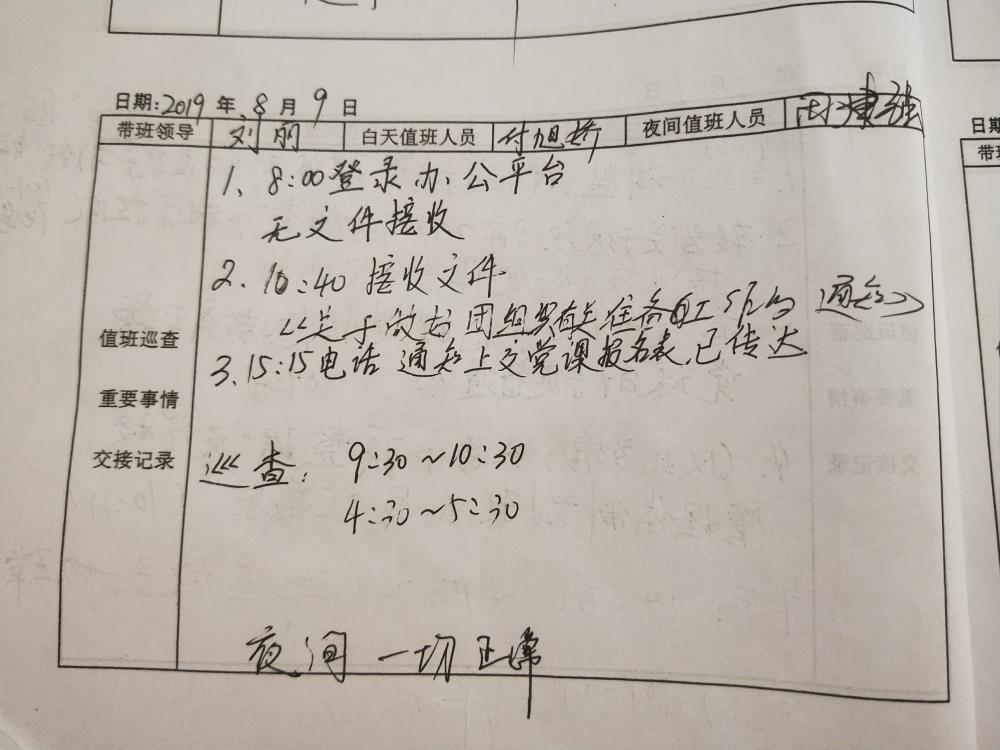 日期:2019年8月9日
带班领导 刘丽 白天值班人员 付旭娇 夜间值班人员
1、8:00登录办公平台
无文件接收
2、10:40 接收文件
《关于做好团组织 通知》
3、15:15电话 通知上交党课报名表,已传达
值班巡查
重要事情
交接记录
巡查: 9:30~10:30
4:30~5:30
夜间 一切正常
日期
带班